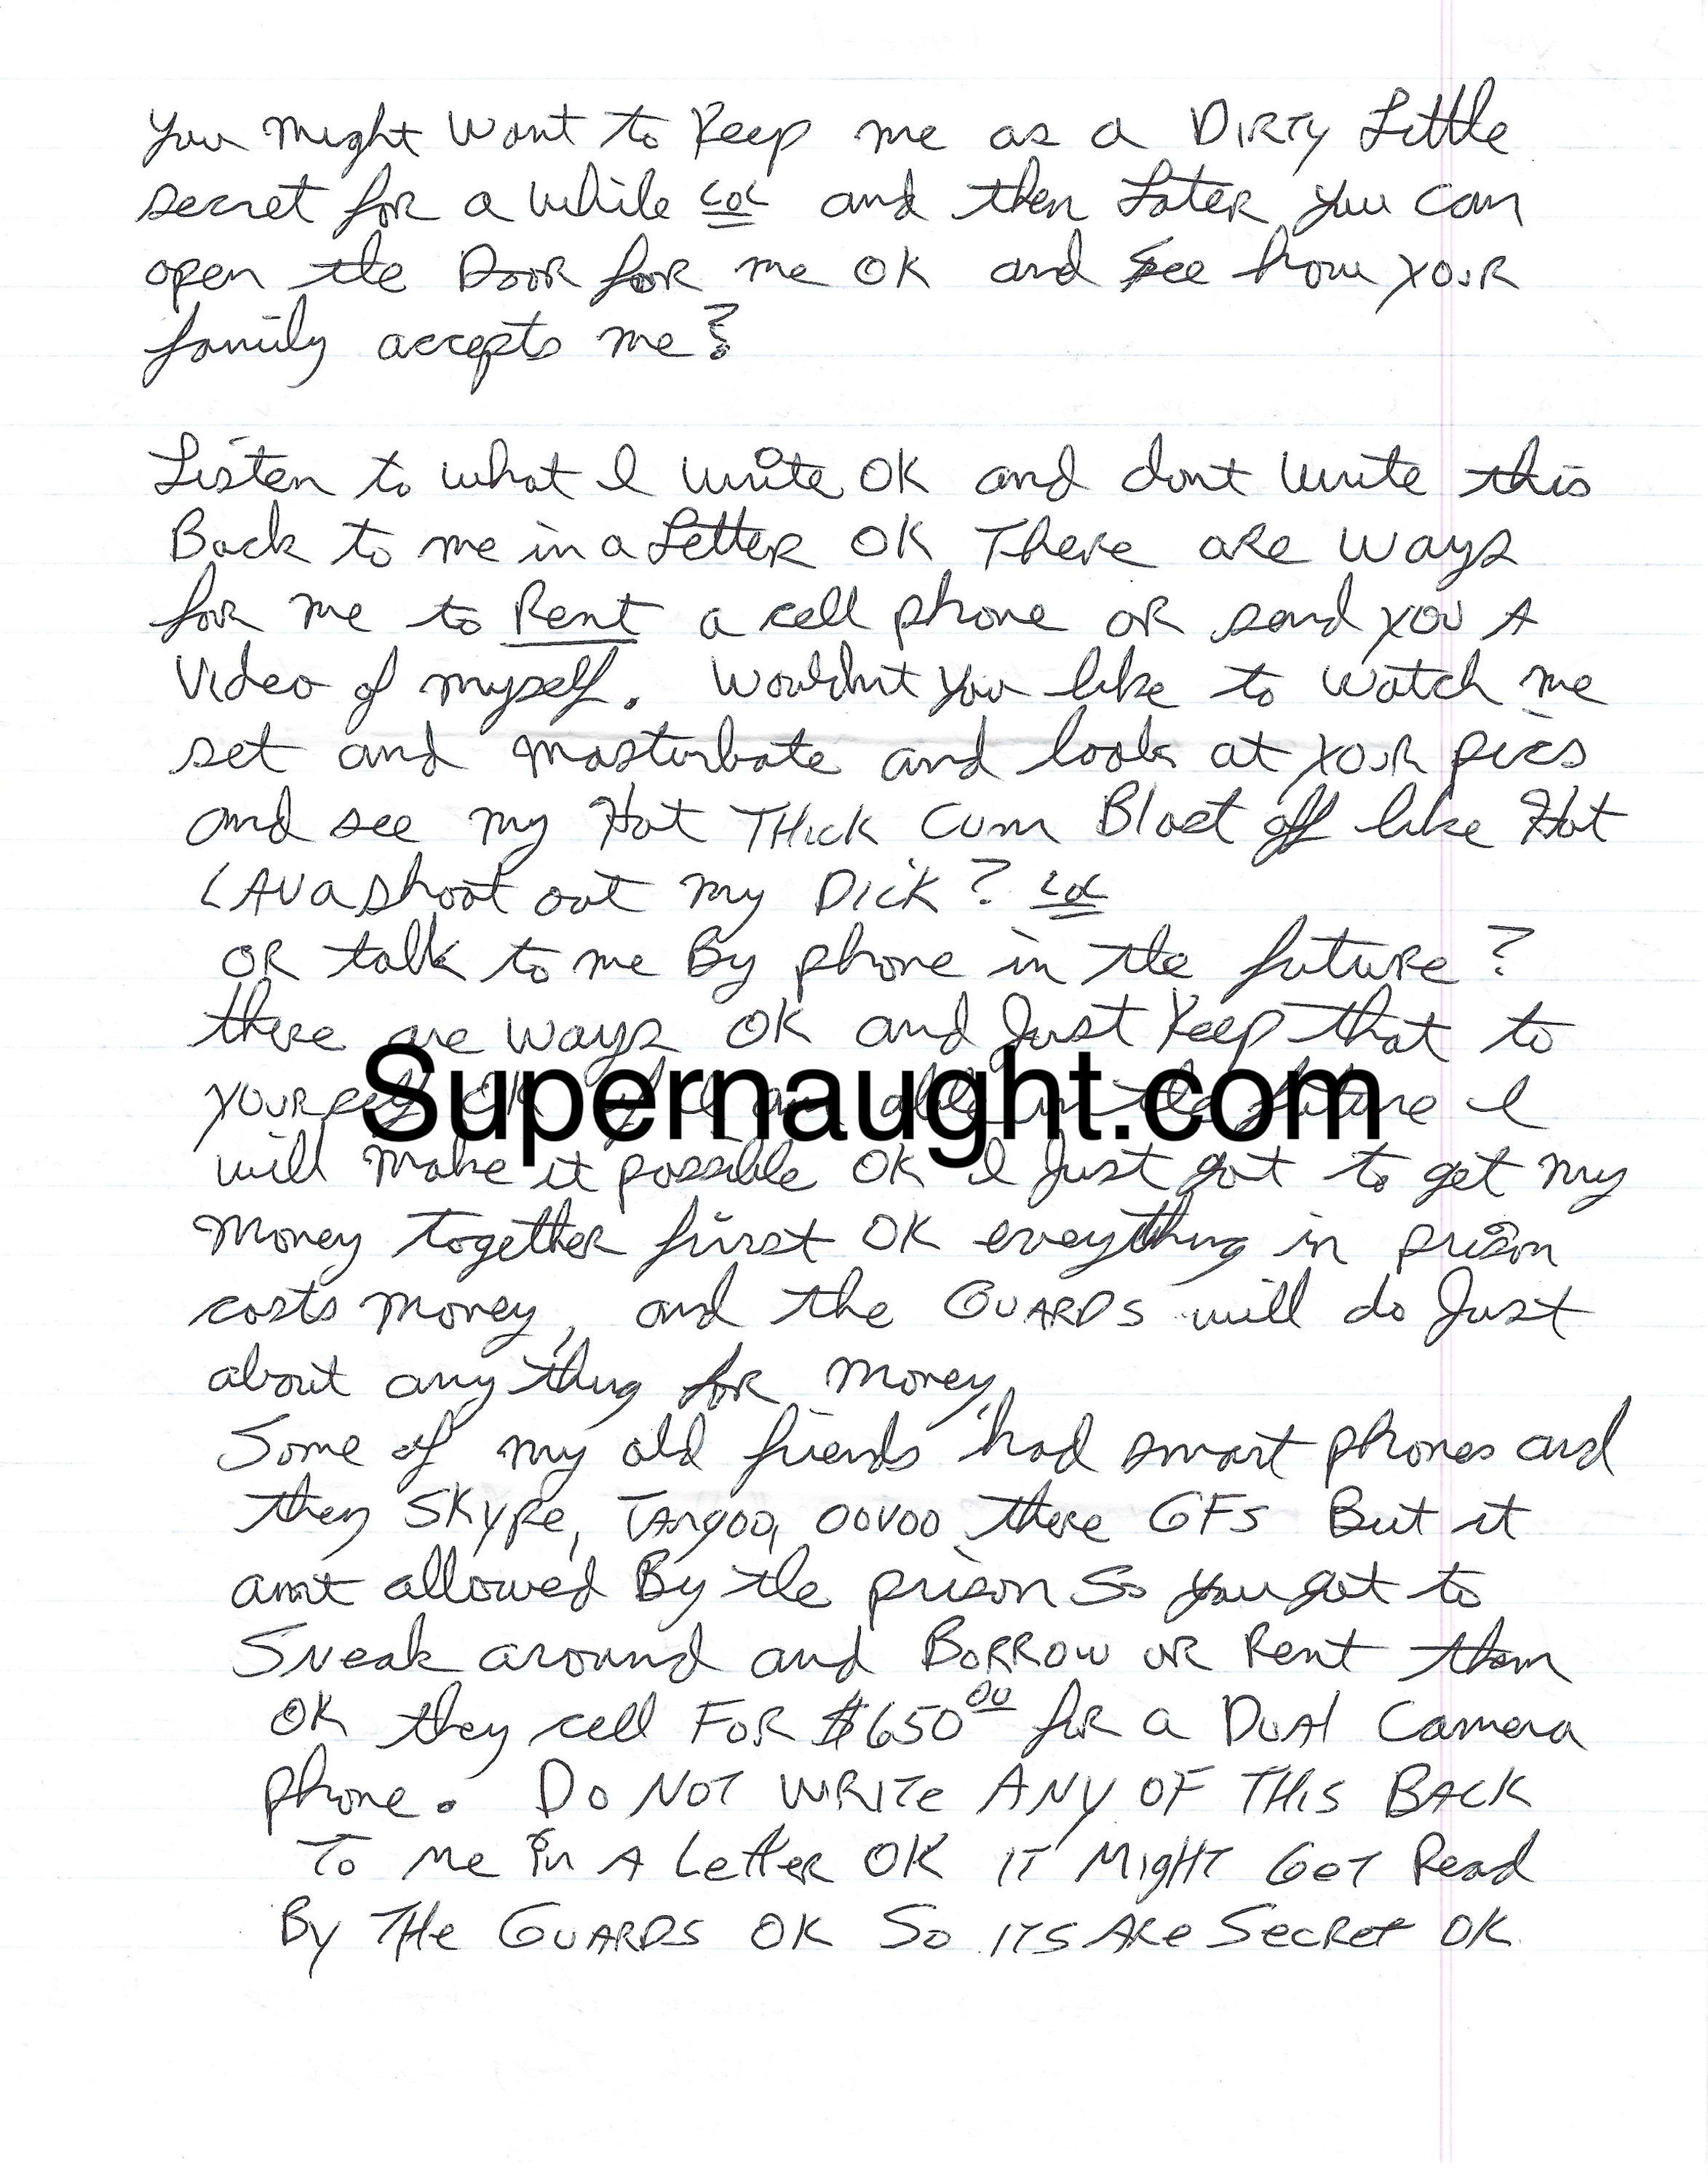 You might want to Keep me as a DIRTY Little
secret for a while LOL and then Later you can
open the Door for me OK and see how your
family accepts me?
Listen to what I write OK and dont write this
Back to me in a Letter OK There are ways
for me to Rent a cell phone or send you A
Video of myself. Wouldnt you like to watch me
set and masturbate and look at your pics
and see my Hot THICK Cum Blast off like Hot
LAVA shoot out my DICK? LOL
OR talk to me By phone in the future?
there are ways OK and Just Keep that to
yourself OK if I am able in the future I
Supernaught.com
will make it possible OK I Just got to get my
money together first OK eveything in prison
costs money, and the GUARDS will do Just
about any thing for money,
Some of my old friends had smart phones and
they SKYPE, TANGOO, OOVOO there GFS But it
aint allowed By the prison So you got to
Sneak around and BORROW OR Rent them
OK they cell FOR $650.00 for a DUAL Camera
phone. DO NOT WRITE ANY OF THIS BACK
TO Me in A Letter OK IT MIGHT GET Read
By THe GUARDS OK SO ITS ARe SecRet OK